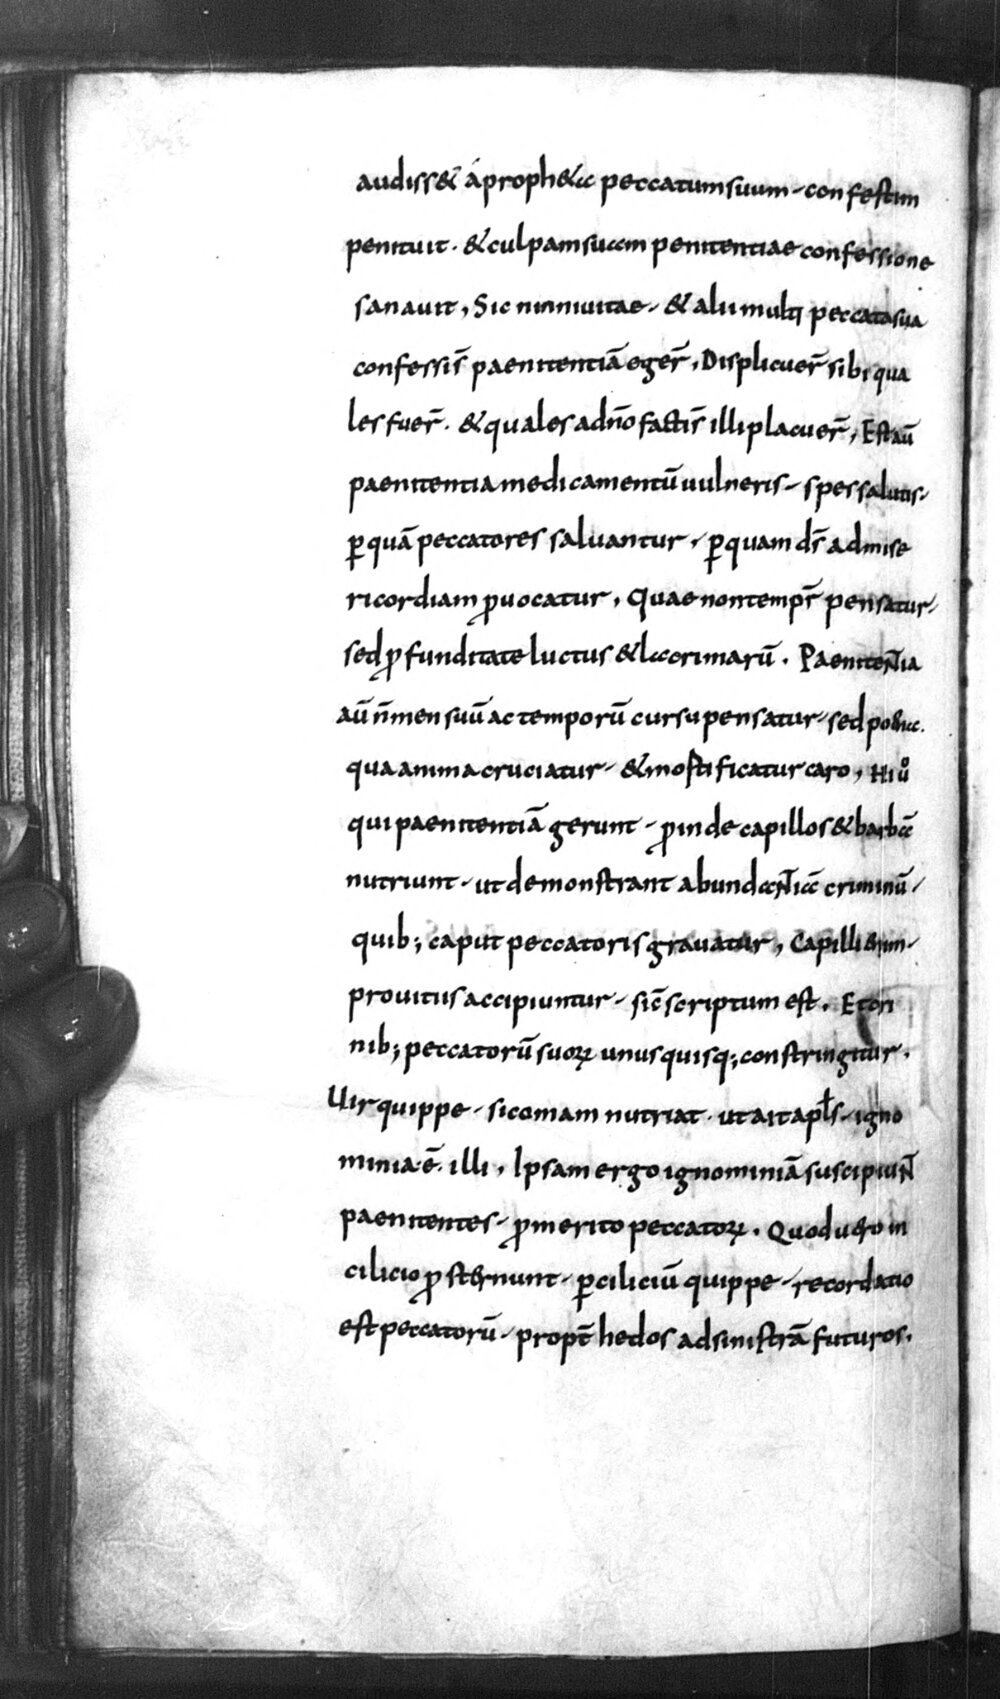 audiss& á proph&a peccatum suum. confestim
penituit. & culpam suam penitentiae confessione
sanauit, Sic niniuitae. & alii multi peccata sua
confessis̄ paenitentiā eger̄, Displicuer̄ sibi qua
les fuer̄. & quales ad dn̄o factis̄ illi placuer̄, Est aū
paenitentia medicamentū uulneris. spes salutis.
ꝑ quā peccatores saluantur. ꝑ quam ds̄ ad mise
ricordiam ꝓuocatur, Quae non temps̄ pensatur.
sed ꝓfunditate luctus & lacrimarū. Paenitentia
aū n̄ mensuū ac temporū cursu pensatur. sed
qua anima cruciatur. & mortificatur caro, Hi uͦ
qui paenitentiā gerunt. ꝓinde capillos & barbā
nutriunt. ut demonstrant abundantiā criminū.
quib; caput peccatoris grauatur, Capilli enim.
pro uitiis accipiuntur. sic̄ scriptum est. Et cri
nib; peccatorū suoꝝ unusquisq; constringitur.
Uir quippe. si comam nutriat. ut ait apls̄. igno
minia ē. illi, Ipsam ergo ignominiā suscipiunt
paenitentes. ꝓ merito peccatoꝝ. Quod uero in
cilicio ꝓsternunt. ꝑ ciliciū quippe. recordatio
est peccatorū. propt̄ hedos ad sinistrā futuros.